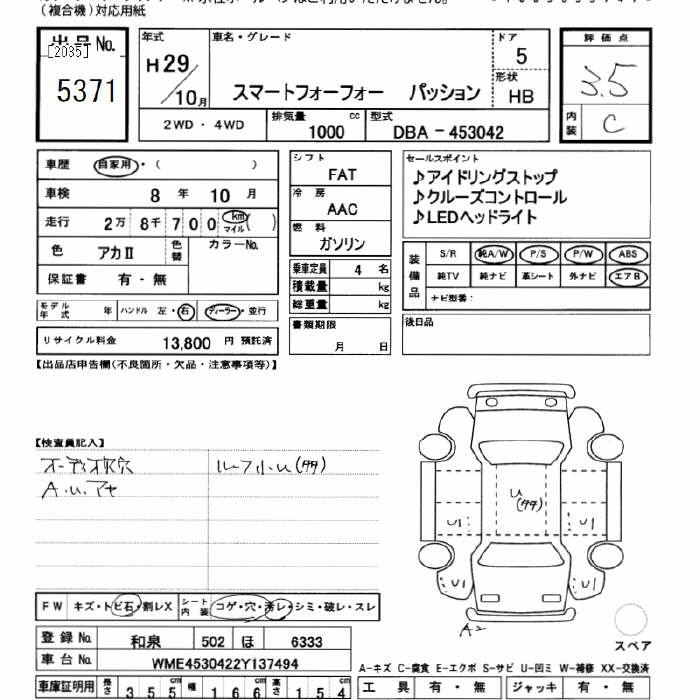 (複合機)対応用紙
出品No.
[2035]
5371
年式
H29/10月
車名・グレード
スマートフォーフォー パッション
ドア
5
形状
HB
評価点
3.5
内装
C
2WD・4WD
排気量 cc
1000
型式
DBA-453042
車歴 自家用・( )
車検 8年 10月
走行 2万 8千 7 0 0 km マイル ( )
色 アカⅡ 色替 カラーNo.
保証書 有・無
モデル年式 年 ハンドル 左・右 ディーラー・並行
リサイクル料金 13,800 円 預託済
シフト
FAT
冷房
AAC
燃料
ガソリン
乗車定員 4 名
積載量 kg
総重量 kg
書類期限
月 日
セールスポイント
♪アイドリングストップ
♪クルーズコントロール
♪LEDヘッドライト
装備品
S/R 純A/W P/S P/W ABS
純TV 純ナビ 革シート 外ナビ エアB
ナビ型番:
後日品
【出品店申告欄(不良箇所・欠品・注意事項等)】
【検査員記入】
A.u.アセ
U
U1
U1
U1
U1
A2
スペア
FW キズ・トビ石・割レX シート内装 コゲ・穴・汚レ・シミ・破レ・スレ
登録No. 和泉 502 ほ 6333
車台No. WME4530422Y137494
車庫証明用 長さ 355cm 幅 166cm 高さ 154cm
A-キズ C-腐食 E-エクボ S-サビ U-凹ミ W-補修 XX-交換済
工具 有・無 ジャッキ 有・無